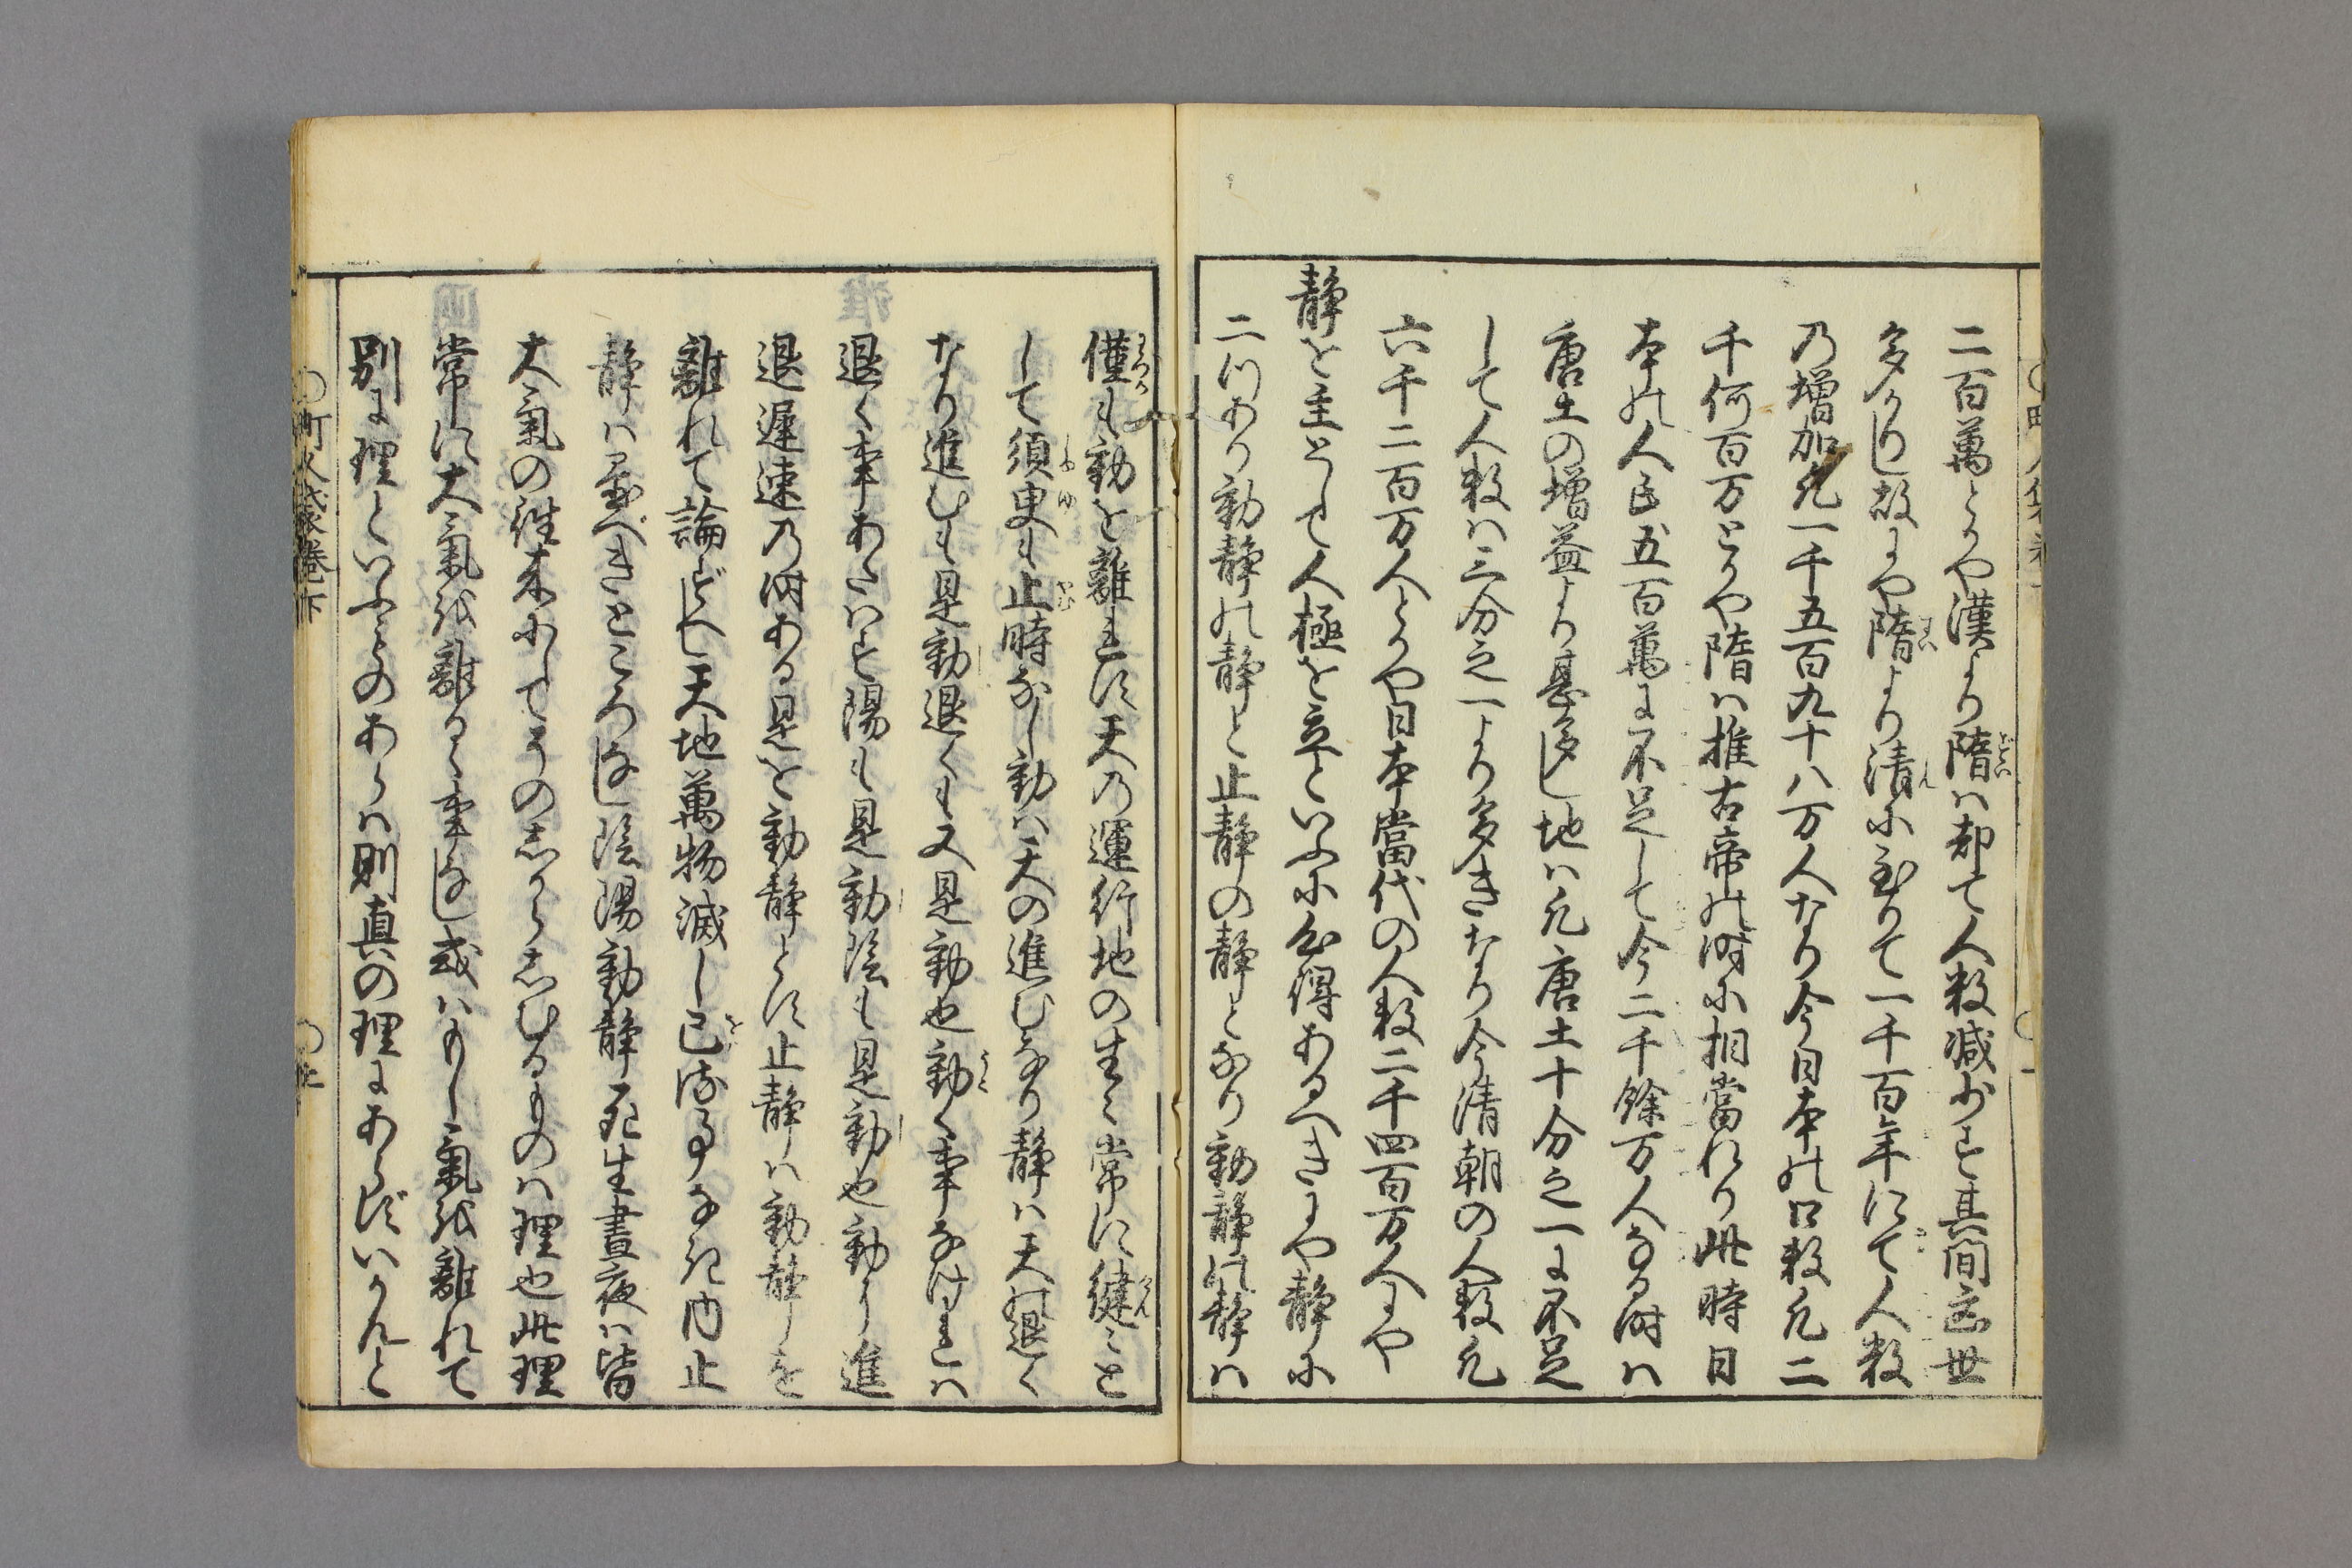 二百萬とかや漢より隋は却て人数減少す其間乱世
多かりし故にや隋より清に至りて一千百年にて人数
乃増加凡一千五百九十八万人なり今日本の口数凡二
千何百万とかや隋は推古帝の時に相當れり此時日
本の人民五百萬に不足して今二千餘万人なる時は
唐土の増益より甚多し地は凡唐土十分之一に不足
して人数は三分之一より多きなり今清朝の人数凡
六千二百万人とかや日本當代の人数二千四百万人とかや
静を主として人極を立といふに心得あるへきにや静に
二つあり動静の静と止静の静となり動静の静は
僅も動を離れす天乃運行地の生々常に健々と
して須臾も止時なし動は天の進むなり静は天の退く
なり進むも是動退くも又是動也動く事なけれは
退く事あたはす陽も是動陰も是動也動より進
退遅速乃時ある是を動静とす止静は動静を
離れて論ずへし天地萬物滅し已
静は至べきところなし陰陽動静死生晝夜は皆
大氣の往来にしてその志からしむるものは理也此理
常に大氣を離るゝ事なし或はもし氣を離れて
別に理といふものあらは則真の理にあらずいかんと
町人袋巻下